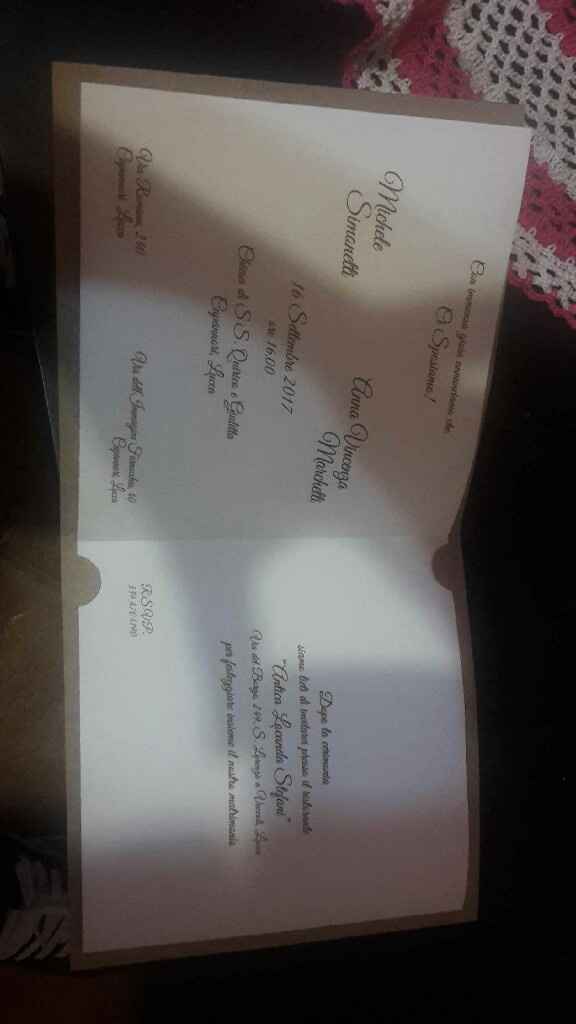 Con immensa gioia annunciamo che
Ci Sposiamo!
Michele
Simonetti
Anna Vincenza
Marchetti
16 Settembre 2017
ore 16.00
Chiesa di S.S. Quirico e Giulitta
Capannori, Lucca
Via Romana,
Capannori, Lucca
Via dell'Immagine 40
Capannori, Lucca
Dopo la cerimonia
siamo lieti di invitarvi presso il ristorante
"Antica Locanda Stefani"
Via del Borgo, S. Lorenzo a Vaccoli, Lucca
per festeggiare insieme il nostro matrimonio
R.S.V.P.